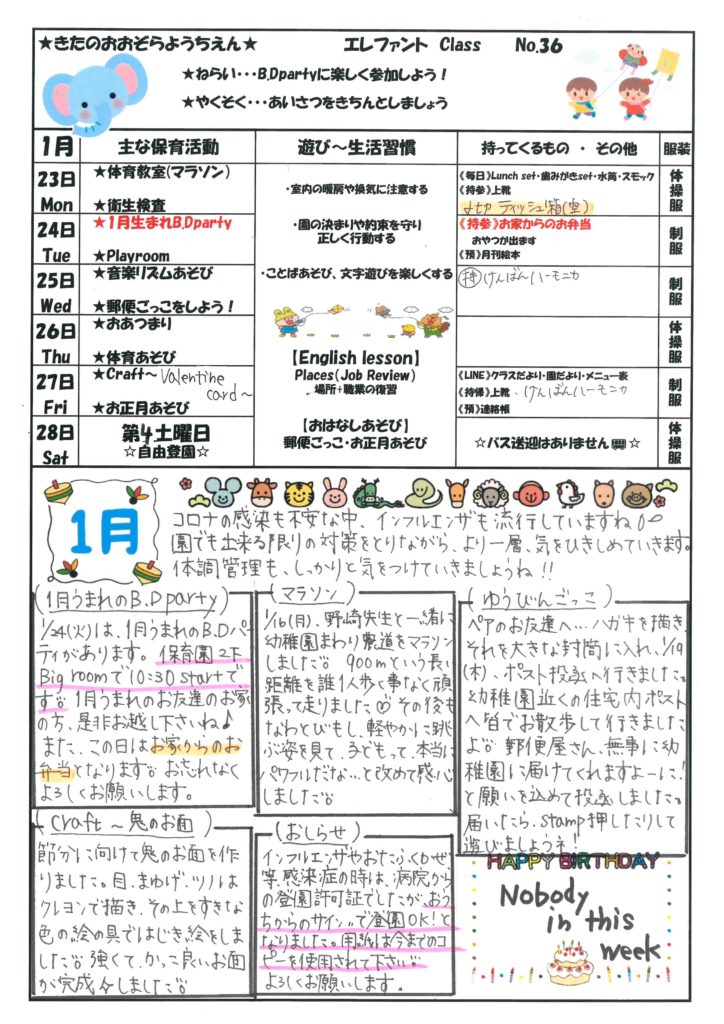 ★きたのおおぞらようちえん★ エレファント Class No.36
★ねらい・・・B.Dpartyに楽しく参加しよう！
★やくそく・・・あいさつをきちんとしましょう
1月 主な保育活動 遊び～生活習慣 持ってくるもの ・ その他 服装
23日 Mon
★体育教室(マラソン)
★衛生検査
・室内の暖房や換気に注意する
《毎日》Lunch set・歯みがきset・水筒・スモック
《持参》上靴
ティッシュ箱(空)
体操服
24日 Tue
★1月生まれB.Dparty
★Playroom
・園の決まりや約束を守り
正しく行動する
《持参》お家からのお弁当
おやつが出ます
《預》月刊絵本
制服
25日 Wed
★音楽リズムあそび
★郵便ごっこをしよう！
・ことばあそび、文字遊びを楽しくする
持 けんばんハーモニカ
制服
26日 Thu
★おあつまり
★体育あそび
体操服
【English lesson】
Places(Job Review)
場所+職業の復習
27日 Fri
★Craft～Valentine
card～
★お正月あそび
《LINE》クラスだより・園だより・メニュー表
《持帰》上靴、けんばんハーモニカ
《預》連絡帳
制服
28日 Sat
第4土曜日
☆自由登園☆
【おはなしあそび】
郵便ごっこ・お正月あそび
☆バス送迎はありません☆
体操服
1月
コロナの感染も不安な中、インフルエンザも流行していますね
園でも出来る限りの対策をとりながら、より一層、気をひきしめていきます。
体調管理も、しっかりと気をつけていきましょうね!!
(1月うまれのB.D party)
1/24(火)は、1月うまれのB.Dパー
ティがあります。保育園2F
Big roomで10:30 startで
す。1月うまれのお友達のお家
の方、是非お越し下さいね♪
また、この日はお家からのお
弁当となります。お忘れなく
よろしくお願いします。
(マラソン)
1/16(月)、野崎先生と一緒に
幼稚園まわり農道をマラソン
しました。900mという長い
距離を誰1人歩く事なく頑
張って走りました♡その後も
なわとびもし、軽やかに跳
ぶ姿を見て、子どもって、本当に
パワフルだな…と改めて感心
しました。
(ゆうびんごっこ)
ペアのお友達へ…ハガキを描き
それを大きな封筒に入れ、1/19
(木)、ポスト投函へ行きました。
幼稚園近くの住宅内ポスト
へ皆でお散歩して行きました
よ。郵便屋さん、無事に幼
稚園に届けてくれますよーに!
と願いを込めて投函しました。
届いたら、stamp押したりして
遊びましょうネ!
(Craft ～ 鬼のお面)
節分に向けて鬼のお面を作
りました。目、まゆげ、ツノは
クレヨンで描き、その上をすきな
色の絵の具ではじき絵をしま
した。強くて、かっこ良いお面
が完成しました。
(おしらせ)
インフルエンザやおたふくかぜ
等、感染症の時は、病院から
の登園許可証でしたが、おう
ちからのサインで登園OK!と
なりました。用紙は今までのコ
ピーを使用されて下さい。
よろしくお願いします。
HAPPY BIRTHDAY
Nobody
in this
week